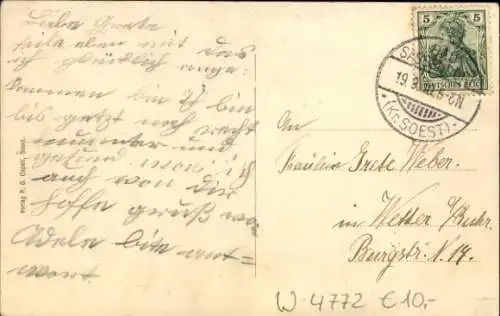 Liebe Grete
teile eben mit das
ich glücklich ange-
kommen bin Ich bin
bis getzt noch recht
munter und
gesund
auch von dir
hoffe gruß von
Adele bite ant=
wort
5
DEUTSCHES REICH
19.9.
5-6N.
(KR. SOEST)
An
Fräulein Grete Weber.
in Wetter a/Ruhr.
Burgstr. N. 17.
W 4772 €10,-